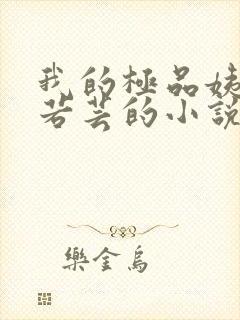 我的極品姨
若芸的小說
樂金烏